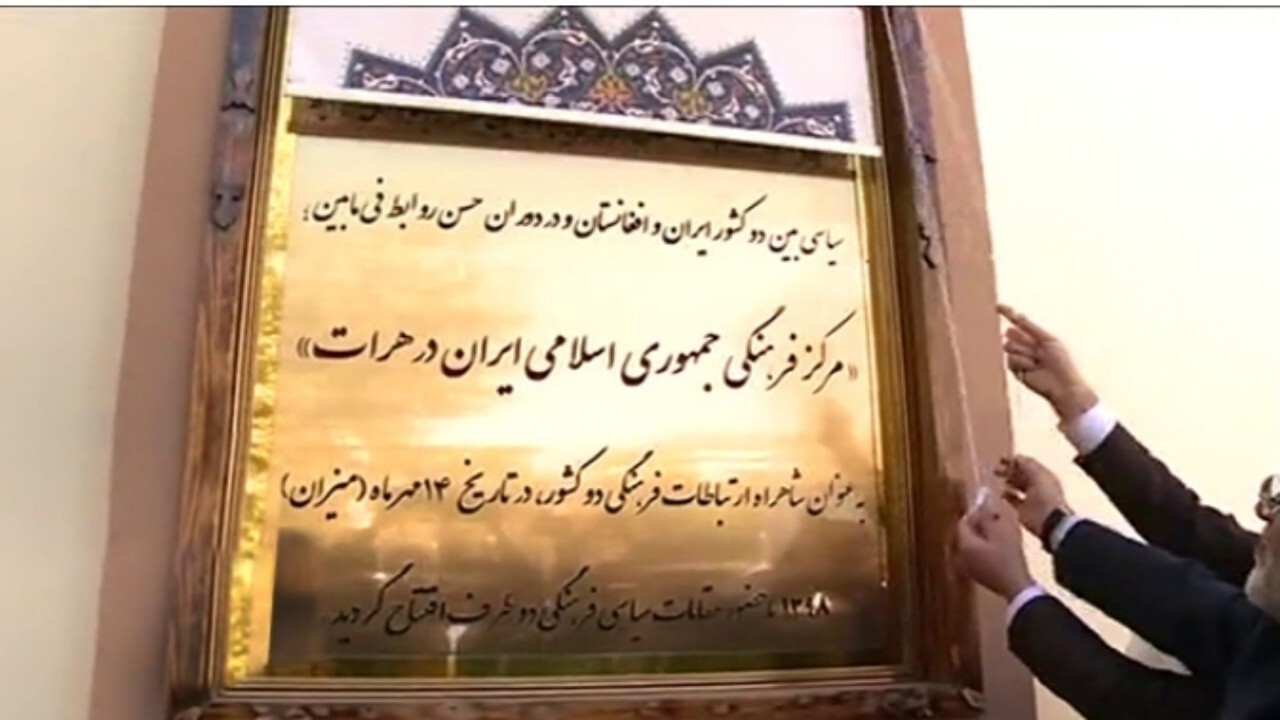 سیاسی بین دو کشور ایران و افغانستان و در دوران حسن روابط فی مابین؛
«مرکز فرهنگی جمهوری اسلامی ایران در هرات»
به عنوان شاهراه ارتباطات فرهنگی دو کشور، در تاریخ ۱۴ مهر ماه (میزان)
۱۳۹۸ با حضور مقامات سیاسی فرهنگی دو طرف افتتاح گردید.